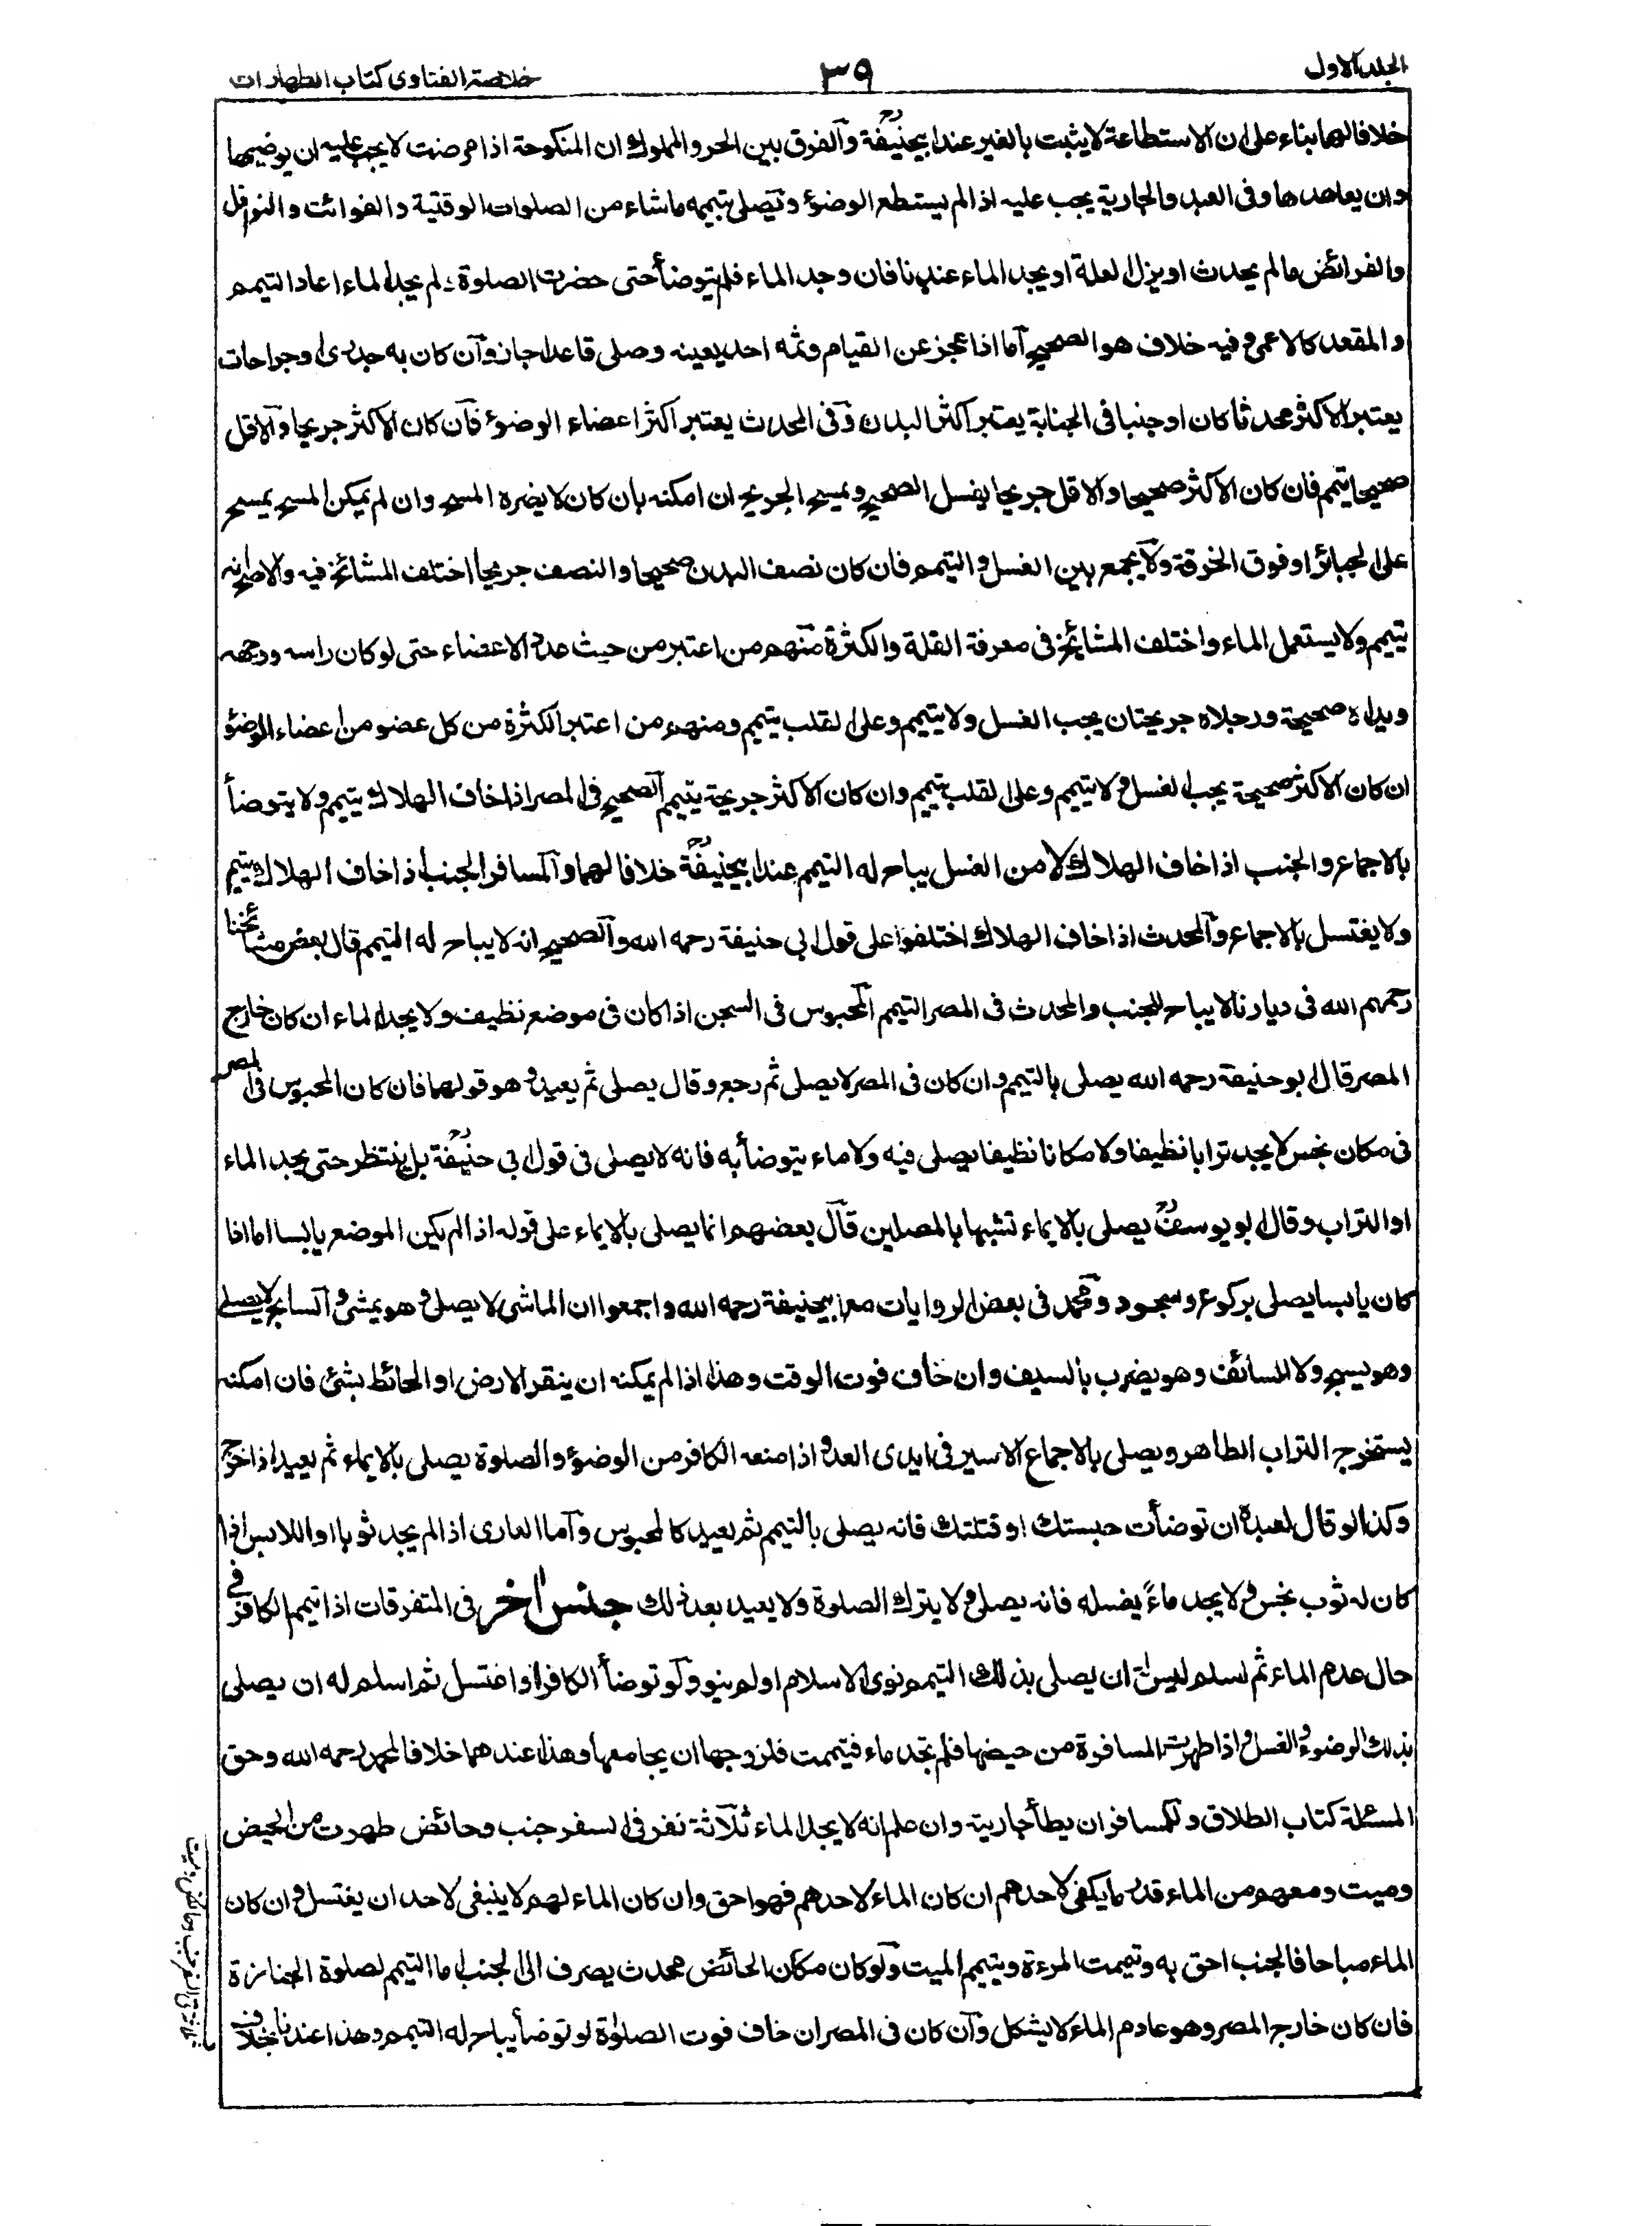 الجلد الاول
٣٩
خلاصة الفتاوى كتاب الطهارات
خلافا لهما بناء على ان الاستطاعة لا يثبت بالغير عند ابيحنيفة رح والفرق بين الحر والمملوك ان المنكوحة اذا مرضت لا يجب عليه ان يوضيها
وان يعاهدها وفى العبد والجارية يجب عليه اذا لم يستطع الوضوء ويصلى بتيممه ماشاء من الصلوات الوقتية والفوائت والنوافل
والفرائض مالم يحدث او يزل العلة او يجد الماء عندنا فان وجد الماء فلم يتوضأ حتى حضرت الصلوة ولم يجد الماء اعاد التيمم
والمقعد كالاعمى وفيه خلاف هو الصحيح اما اذا عجز عن القيام وثمه احد يعينه وصلى قاعدا جاز وان كان به جدرى او جراحات
يعتبر الاكثر محدثا كان او جنبا فى الجنابة يعتبر اكثر البدن وفى المحدث يعتبر اكثر اعضاء الوضوء فان كان الاكثر جريحا والاقل
صحيحا يتيمم فان كان الاكثر صحيحا والاقل جريحا يغسل الصحيح ويمسح الجريح ان امكنه بان كان لا يضره المسح وان لم يمكن المسح يمسح
على الجبائر او فوق الخرقة ولا يجمع بين الغسل والتيمم فان كان نصف البدن صحيحا والنصف جريحا اختلف المشائخ فيه والاصح انه
يتيمم ولا يستعمل الماء واختلف المشائخ فى معرفة القلة والكثرة منهم من اعتبر من حيث عدد الاعضاء حتى لو كان راسه ووجهه
ويداه صحيحة ورجلاه جريحتان يجب الغسل ولا يتيمم وعلى القلب يتيمم ومنهم من اعتبر الكثرة من كل عضو من اعضاء الوضوء
ان كان الاكثر صحيحة يجب الغسل ولا يتيمم وعلى القلب يتيمم وان كان الاكثر جريحة يتيمم الصحيح فى المصر اذا خاف الهلاك يتيمم ولا يتوضأ
بالاجماع والجنب اذا خاف الهلاك لا من الغسل يباح له التيمم عند ابيحنيفة رح خلافا لهما والمسافر الجنب اذا خاف الهلاك يتيمم
ولا يغتسل بالاجماع والمحدث اذا خاف الهلاك اختلفوا على قول ابى حنيفة رحمه الله والصحيح انه لا يباح له التيمم قال بعض مشائخنا
رحمهم الله فى ديارنا لا يباح للجنب والمحدث فى المصر التيمم المحبوس فى السجن اذا كان فى موضع نظيف ولا يجد الماء ان كان خارج
المصر قال ابو حنيفة رحمه الله يصلى بالتيمم وان كان فى المصر لا يصلى ثم رجع وقال يصلى ثم يعيد وهو قولهما فان كان المحبوس فى المصر
فى مكان نجس لا يجد ترابا نظيفا ولا مكانا نظيفا يصلى فيه ولا ماء يتوضأ به فانه لا يصلى فى قول ابى حنيفة رح بل ينتظر حتى يجد الماء
او التراب وقال ابو يوسف رح يصلى بالايماء تشبها بالمصلين قال بعضهم انما يصلى بالايماء على قوله اذا لم يكن الموضع يابسا اما اذا
كان يابسا يصلى بركوع وسجود ومحمد فى بعض الروايات مع ابيحنيفة رحمه الله واجمعوا ان الماشى لا يصلى وهو يمشى والسابح لا يصلى
وهو يسبح ولا السائف وهو يضرب بالسيف وان خاف فوت الوقت وهذا اذا لم يمكنه ان ينقر الارض او الحائط بشئ فان امكنه
يستخرج التراب الطاهر ويصلى بالاجماع الاسير فى ايدى العدو اذا منعه الكافر من الوضوء والصلوة يصلى بالايماء ثم يعيد اذا خرج
وكذا لو قال لعبده ان توضأت حبستك او قتلتك فانه يصلى بالتيمم ثم يعيد كالمحبوس واما العارى اذا لم يجد ثوبا او اللابس اذا
كان له ثوب نجس ولا يجد ماءً يغسله فانه يصلى ولا يترك الصلوة ولا يعيد بعد ذلك جنس اخر فى المتفرقات اذا تيمم الكافر فى
حال عدم الماء ثم اسلم ليس له ان يصلى بذلك التيمم نوى الاسلام اولم ينو ولو توضأ الكافر او اغتسل ثم اسلم له ان يصلى
بذلك الوضوء والغسل واذا طهرت المسافرة من حيضها فلم تجد ماء فتيممت فلزوجها ان يجامعها وهذا عندهما خلافا لمحمد رحمه الله وحق
المسئلة كتاب الطلاق وللمسافر ان يطأ جاريته وان علم انه لا يجد الماء ثلاثة نفر فى السفر جنب وحائض طهرت من الحيض
وميت ومعهم من الماء قدر ما يكفى لاحدهم ان كان الماء لاحدهم فهو احق وان كان الماء لهم لا ينبغى لاحد ان يغتسل وان كان
الماء مباحا فالجنب احق به وتيممت المرءة ويتيمم الميت ولو كان مكان الحائض محدث يصرف الى الجنب اما التيمم لصلوة الجنازة
فان كان خارج المصر وهو عادم الماء لا يشكل وان كان فى المصر ان خاف فوت الصلوٰة لو توضأ يباح له التيمم وهذا عندنا بخلاف
ثلاثة فى السفر جنب وحائض وميت